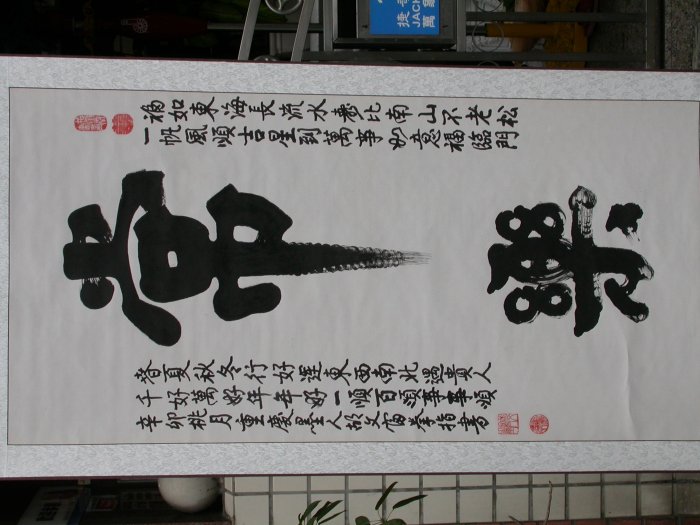 福如東海長流水壽比南山不老松
一帆風順吉星到萬事如意福臨門
常樂
春夏秋冬行好運東西南北遇貴人
千好萬好年年好一順百順事事順
辛卯桃月重慶墨人胡文富拳指書
捷
萬